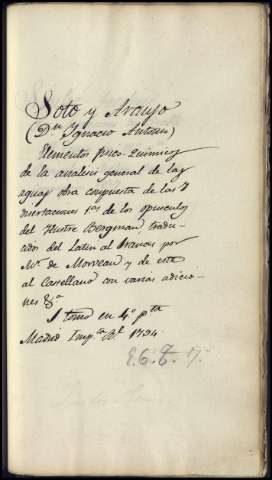 Soto y Araujo
(Dn Ignacio Antonio)
Elementos fisico-Quimicos
de la analisis general de las
aguas obra compuesta de las 7
disertaciones 1as de los opusculos
del Ilustre Bergman tradu-
cidos del Latin al Frances por
Mr. de Morveau y de este
al Castellano con varias adicio-
nes &a
1 tomo en 4o pta
Madrid Impta Rl 1794
E. 6. T. 17.